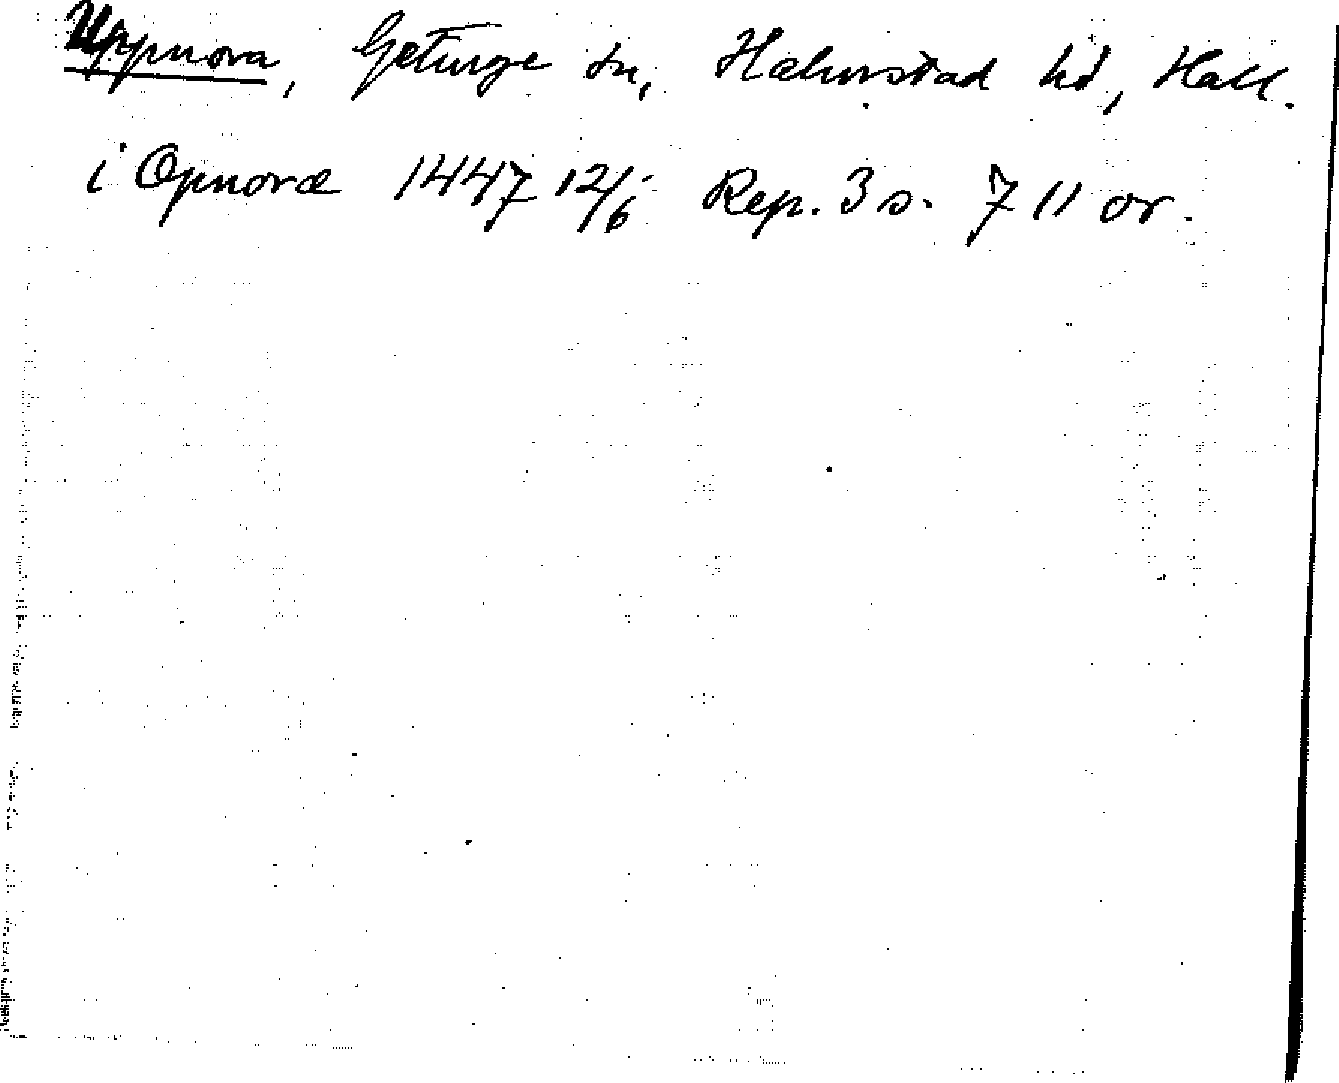 Uppnora, Getinge sn, Halmstad hd, Hall.
i Opnoræ 1447 12/6 Rep. 3 s. 711 or.